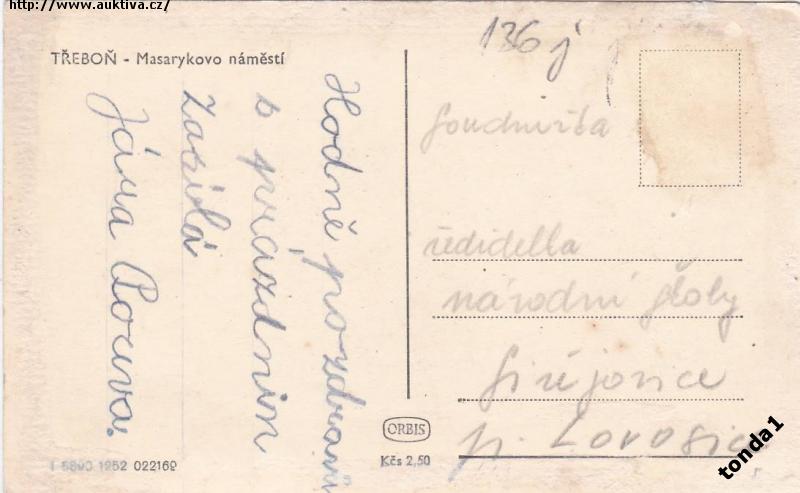 http://www.auktiva.cz/
136 j
TŘEBOŇ - Masarykovo náměstí
Hodně pozdravů
s prázdnin
zasílá
Jára
ředitelka
národní školy
Siřejovice
p. Lovosice
ORBIS
Kčs 2,50
1952 022160
tonda1